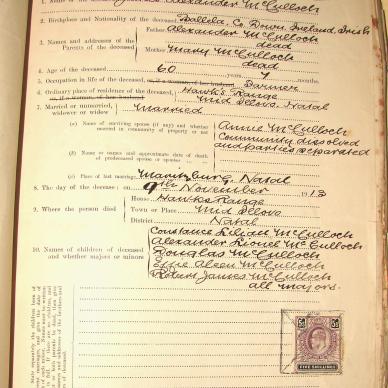 Alexander McCulloch
2. Birthplace and Nationality of the deceased Ballela, Co. Down, Ireland, Irish
3. Names and addresses of the Parents of the deceased
Father Alexander McCulloch
dead
Mother Mary McCulloch
dead
4. Age of the deceased 60 years 7 months.
5. Occupation in life of the deceased Farmer
6. Ordinary place of residence of the deceased, Hawk's Range
Mid Illovo, Natal
7. Married or unmarried, widower or widow Married
(a) Name of surviving spouse (if any) and whether married in community of property or not
Annie McCulloch
Community dissolved
and parties separated
(b) Name or names and approximate date of death of predeceased spouse or spouses
(c) Place of last marriage Maritzburg, Natal
8. The day of the decease: on 9th November 1913
9. Where the person died
House Hawks Range
Town or Place Mid Illovo
District Natal
10. Names of children of deceased and whether majors or minors
Constance Lilian McCulloch
Alexander Lionel McCulloch
Douglas McCulloch
Effie Aileen McCulloch
Robert James McCulloch
all majors.
FIVE SHILLINGS